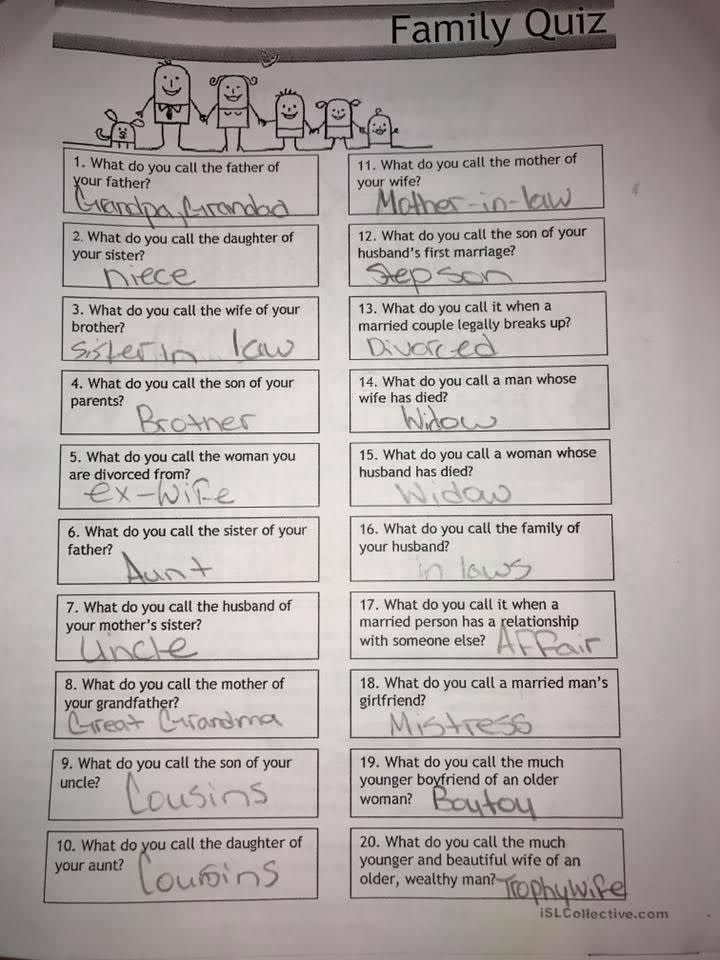 Family Quiz
1. What do you call the father of
your father?
Grandpa, Grandad
2. What do you call the daughter of
your sister?
niece
3. What do you call the wife of your
brother?
Sister in law
4. What do you call the son of your
parents?
Brother
5. What do you call the woman you
are divorced from?
ex-wife
6. What do you call the sister of your
father?
Aunt
7. What do you call the husband of
your mother's sister?
Uncle
8. What do you call the mother of
your grandfather?
Great Grandma
9. What do you call the son of your
uncle?
Cousins
10. What do you call the daughter of
your aunt?
Cousins
11. What do you call the mother of
your wife?
Mother-in-law
12. What do you call the son of your
husband's first marriage?
Step son
13. What do you call it when a
married couple legally breaks up?
Divorced
14. What do you call a man whose
wife has died?
Widow
15. What do you call a woman whose
husband has died?
Widow
16. What do you call the family of
your husband?
in laws
17. What do you call it when a
married person has a relationship
with someone else? Affair
18. What do you call a married man's
girlfriend?
Mistress
19. What do you call the much
younger boyfriend of an older
woman? Boytoy
20. What do you call the much
younger and beautiful wife of an
older, wealthy man? Trophy wife
iSLCollective.com